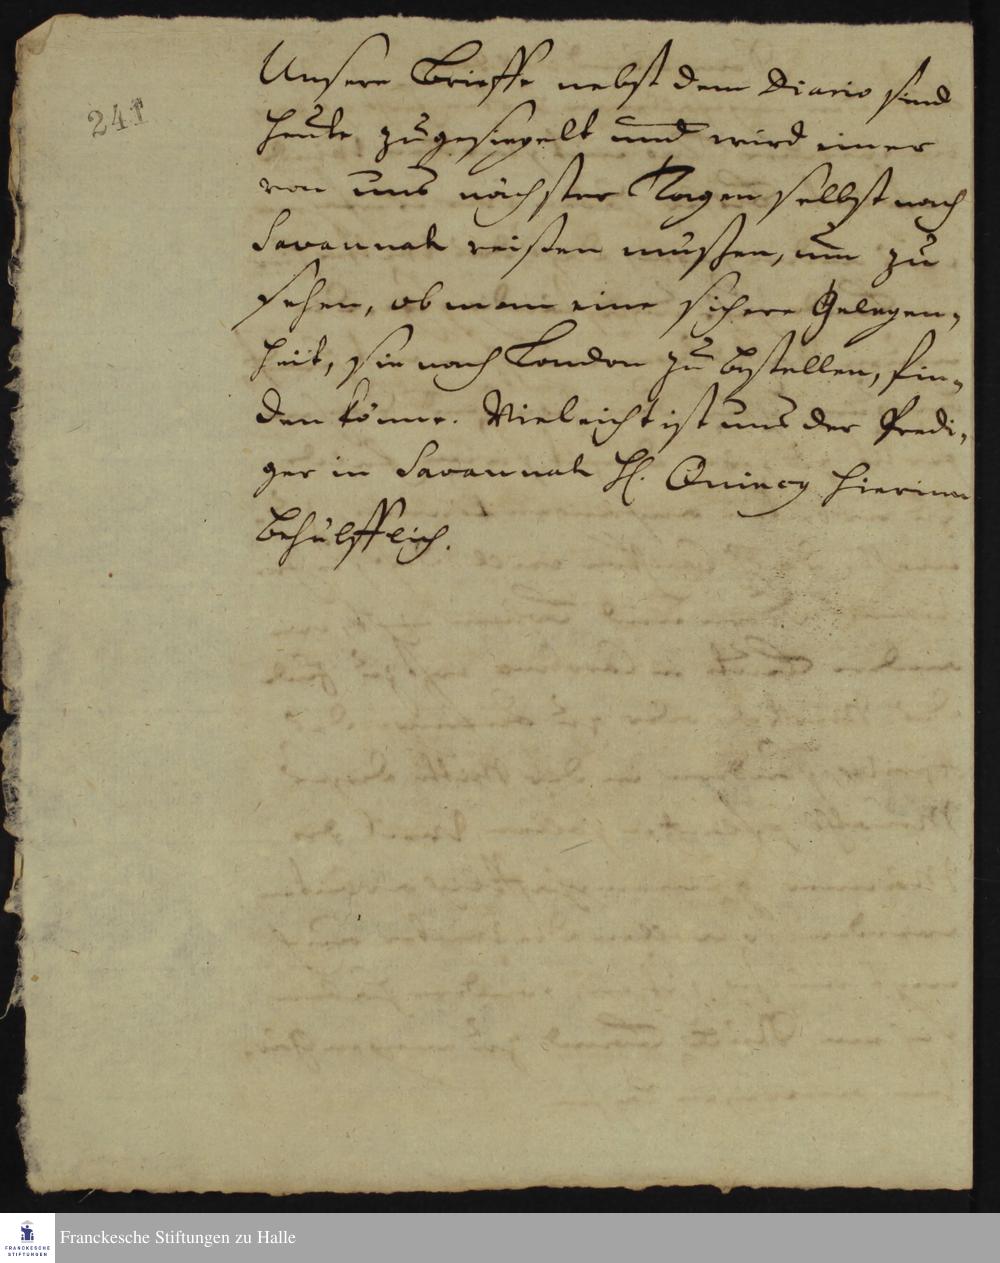 241
Unsere Brieffe nebst dem Diario sind
heute zugesiegelt und wird einer
von uns nächster Tagen selbst nach
Savannah reisen mußen, um zu
sehen, ob man eine sichere Gelegen,
heit, sie nach London zu bestellen, fin,
den könne. Vieleicht ist uns der Predi,
ger in Savannah H. Quincy hierinn
behülfflich.
Franckesche Stiftungen zu Halle
FRANCKESCHE
STIFTUNGEN